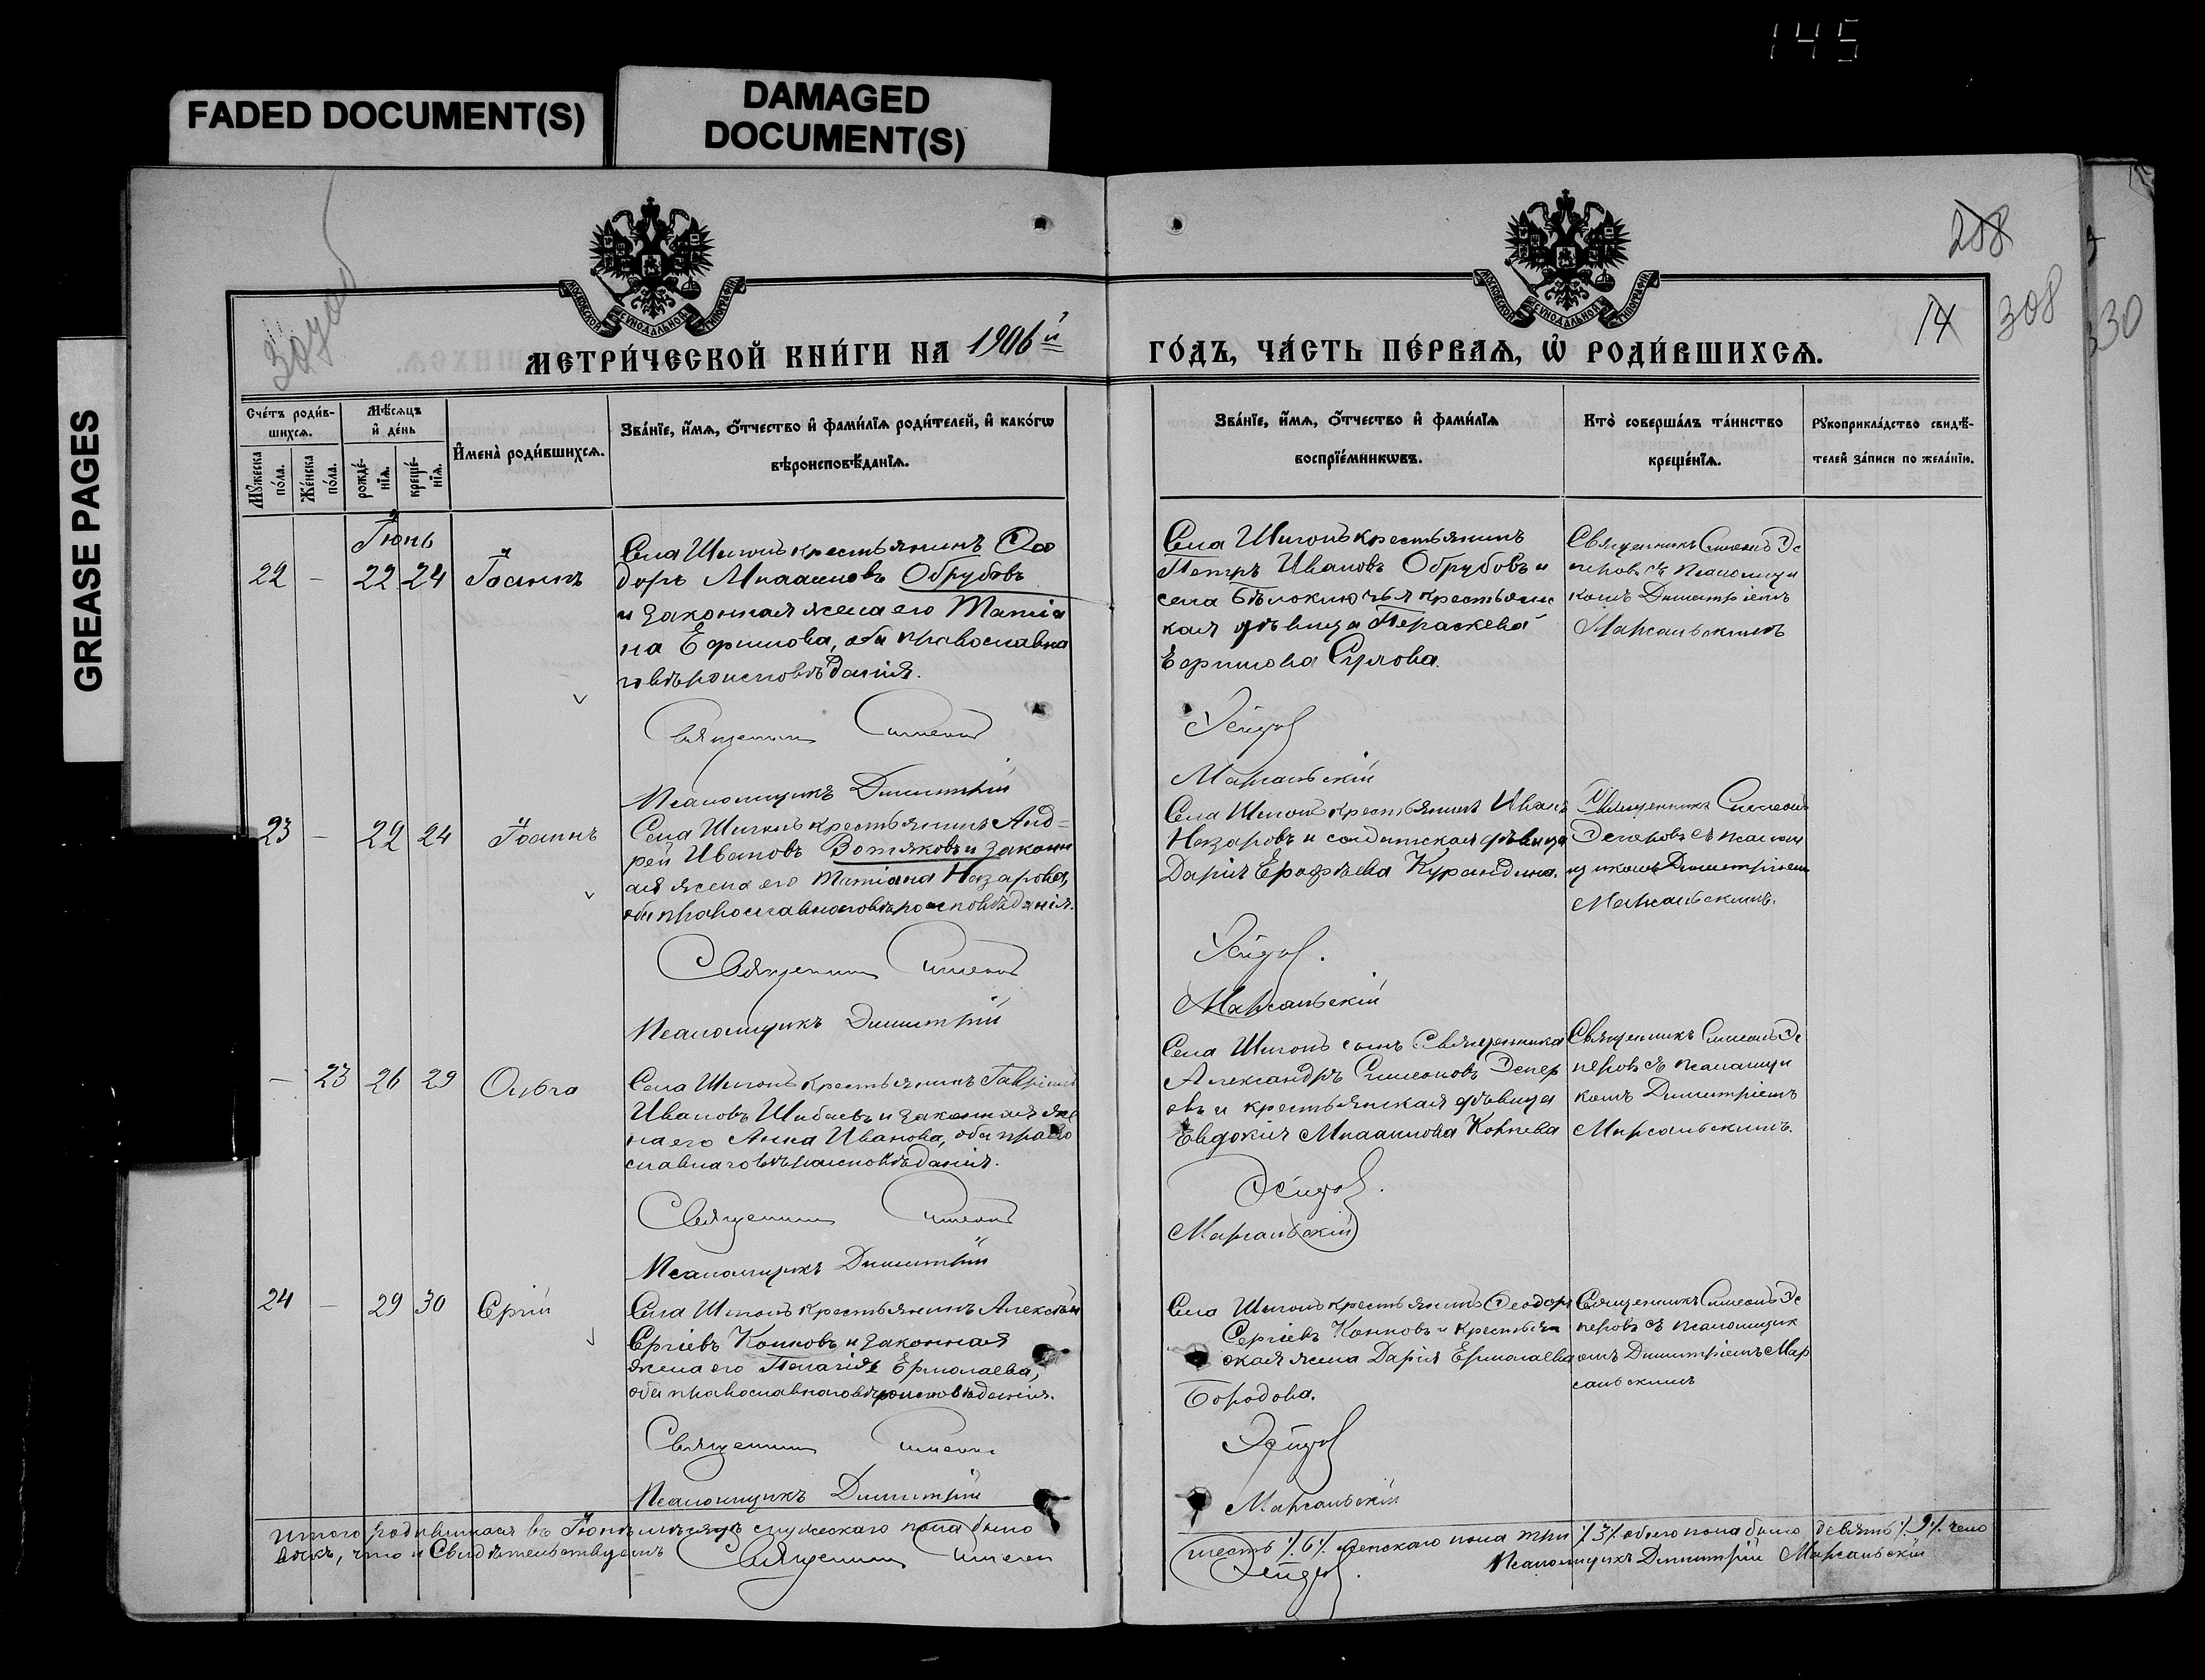 145
FADED DOCUMENT(S)
DAMAGED
DOCUMENT(S)
GREASE PAGES
288
14
308
330
МОСКОВСКОЙ СѴНОДАЛЬНОЙ ТИПОГРАФІИ
МОСКОВСКОЙ СѴНОДАЛЬНОЙ ТИПОГРАФІИ
МЕТРИ́ЧЕСКОЙ КНИ́ГИ НА 1906й
ГО́ДЪ, ЧА́СТЬ ПЕ́РВАѦ, Ѡ҆ РОДИ́ВШИХСѦ.
Сче́тъ роди́в-
шихсѧ.
Мꙋ́жеска
по́ла.
Же́нска
по́ла.
Мѣ́сѧцъ
и҆ де́нь
рожде́-
нїѧ.
креще́-
нїѧ.
И҆мена̀ роди́вшихсѧ.
Зва́нїе, и҆́мѧ, ѻ҆́тчество и҆ фами́лїѧ роди́телей, и҆ како́гѡ
вѣроисповѣ́данїѧ.
Зва́нїе, и҆́мѧ, ѻ҆́тчество и҆ фами́лїѧ
воспрїе́мникѡвъ.
Кто̀ соверша́лъ та́инство
креще́нїѧ.
Рꙋкоприкла́дство свидѣ́-
телей за́писи по жела́нїю.
Іюнь
22 - 22 24 Іоаннъ
Села Шигонъ крестьянинъ Ѳео
доръ Обрубовъ
и законная жена его Татіа
на Ефимова, оба православна
го вѣроисповѣданія.
Священникъ Симеонъ
Псаломщикъ Димитрій
Села Шигонъ крестьянинъ
Петръ Ивановъ Обрубовъ и
села Бѣлоключья крестьянс
кая дѣвица Параскева
Ефимова
Священникъ Симеонъ Эс
перовъ съ псаломщи
комъ Димитріемъ
Марсальскимъ
Марсальскій
23 - 22 24 Іоаннъ
Села Шигонъ крестьянинъ Анд-
рей Ивановъ Вотяковъ и законн
ая жена его Татіана Назарова,
оба православнаго вѣроисповѣданія.
Священникъ Симеонъ
Псаломщикъ Димитрій
Села Шигонъ крестьянинъ Иванъ
Назаровъ и солдатская дѣвица
Дарія Ерофѣева Курандина.
Священникъ Симеонъ
Эсперовъ съ псалом
щикомъ Димитріемъ
Марсальскимъ.
Марсальскій
- 23 26 29 Ольга
Села Шигонъ крестьянинъ Гавріилъ
Ивановъ Шибаевъ и законная же
на его Анна Ивановна, оба право
славнаго вѣроисповѣданія.
Священникъ Симеонъ
Псаломщикъ Димитрій
Села Шигонъ сынъ Священника
Александръ Симеоновъ Эспер
овъ и крестьянская дѣвица
Евдокія Корнева
Священникъ Симеонъ Эс
перовъ съ псаломщи
комъ Димитріемъ
Марсальскимъ.
Марсальскій
24 - 29 30 Сергій
Села Шигонъ крестьянинъ Алексѣй
Сергіевъ Конновъ и законная
жена его Пелагія Ермолаева,
оба православнаго вѣроисповѣданія.
Священникъ Симеонъ
Псаломщикъ Димитрій
Села Шигонъ крестьянинъ Ѳеодоръ
Сергіевъ Конновъ и крестьян
ская жена Дарія Ермолаева
Бородова.
Священникъ Симеонъ Эс
перовъ съ псаломщик
омъ Димитріемъ Мар
сальскимъ
Марсальскій
Итого родившихся въ Іюнѣ мѣсяцѣ мужескаго пола было
шесть /6/ женскаго пола три /3/ обоего пола было девять /9/ чело
вѣкъ, что и свидѣтельствуемъ Священникъ Симеонъ
Псаломщикъ Димитрій Марсальскій